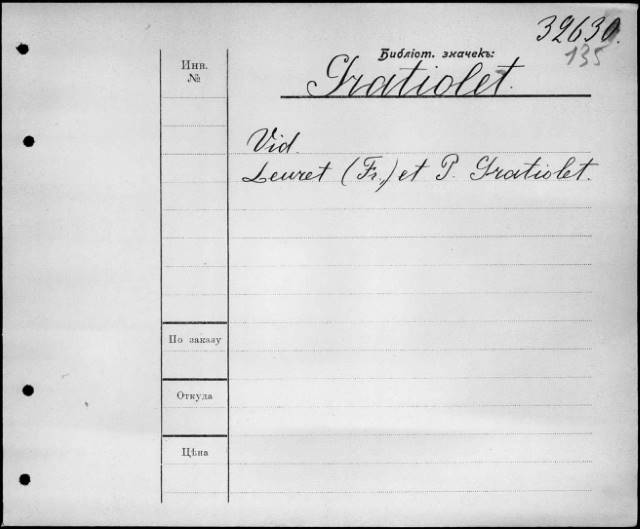 32630.
135
Библіот. значекъ:
Gratiolet.
Инв.
№
Vid.
Leuret (Fr.) et P. Gratiolet.
По заказу
Откуда
Цѣна